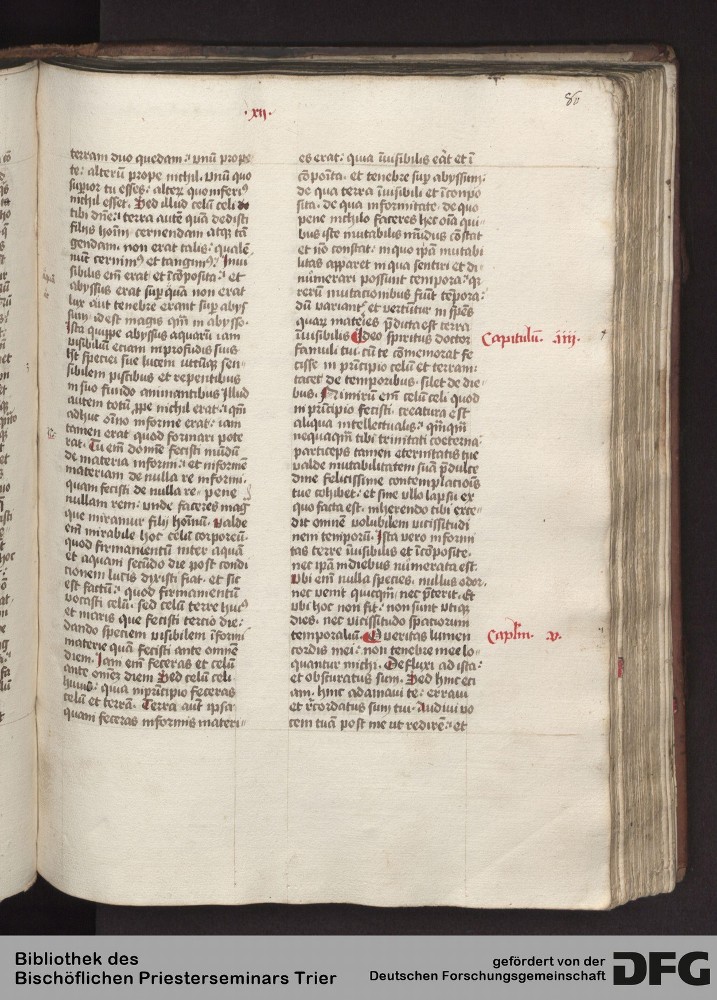 ·xij·
80
terram duo quedam: vnū prope
te: alterū prope nichil. vnū quo
superior tu esses: alterū quo inferiꝰ
nichil esset. Sed illud celū celi
tibi dn̄e: terra autē quā dedisti
filijs hoīm cernendam atqꝫ tā
gendam. non erat talis: qualē
nūc cernimꝰ et tangimꝰ. Inui
sibilis em̄ erat et īcōposita: et
abyssus erat sup quā non erat
lux aut tenebre erant sup abys
sum. id est magis qm̄ in abysso.
Ista quippe abyssus aquarū iam
visibiliū eciam in profūdis suis
hꝫ speciei sue lucem vtcūqꝫ sen-
sibilem piscibus et repentibus
in suo fundo animantibus Illud
autem totū ꝓpe nichil erat: qm̄
adhuc oīno informe erat: iam
tamen erat quod formari pote
rat. Tu em̄ domine fecisti mūdū
de materia informi: et informē
materiam de nulla re informi.
quam fecisti de nulla re- pene
nullam rem: vnde faceres mag
que miramur filij hoīnū. Valde
em̄ mirabile hoc celū corporeū.
quod firmamentū inter aquā
et aquam secūdo die post condi
cionem lucis dixisti fiat. et sic
est factū: quod firmamentū
vocasti celū. sed celū terre huiꝰ
et maris que fecisti tercio die:
dando speciem visibilem īformi
materie quā fecisti ante omnē
diem. Iam em̄ feceras et celū
ante omēz diem Sed celū celi
huius: quia in prīcipio feceras
celū et terrā. Terra aut ipsa
quam feceras informis materi-
es erat: quia īuisibilis erāt et ī
cōpoīta. et tenebre sup abyssum:
de qua terra īuisibili et īconpo
sita. de qua informitate. de quo
pene nichilo faceres hec oīa qui-
bus iste mutabilis mūdus cōstat
et nō constat: in quo ip̄a mutabi
litas apparet in qua sentiri et di-
nūmerari possunt tempora: qꝛ
rerū mutacionibus fiūt tēpora:
dū variant et vertūtur in spēs
quaꝝ materies p̄dicta est terra
īuisibilis Ideo spiritus doctor
famuli tui cū te cōmemorat fe
cisse in prīcipio celū et terram:
tacet de temporibus. silet de die-
bus. Nimirū em̄ celū celi quod
in prīcipio fecisti. creatura est
aliqua intellectualis. qm̄qm̄
nequaqm̄ tibi trinitati coeterna:
particeps tamen eternitatis tue
valde mutabilitatem suā p̄ dulce
dine felicissime contemplacionis
tue cohibet. et sine vllo lapsu ex
quo facta est. inherendo tibi exce-
dit omnē volubilem vicissitudi
nem temporū. Ista vero informi
tas terre īuisibilis et īcōposite.
nec ip̄a in diebus numerata est.
Vbi em̄ nulla species. nullus ordo.
nec venit quicqm̄ nec p̄terit. Et
vbi hoc non fit. non sunt vtiqꝫ
dies. nec vicissitudo spaciorum
temporaliū. O veritas lumen
cordis mei: non tenebre mee lo-
quantur michi. Defluxi ad ista:
et obscuratus sum. Sed hinc eci
am. hinc adamaui te: erraui
et r̄cordatus sum tui. Audiui vo
cem tuā post me ut redirem: et
Capitulū. .iiij.
Caplm̄. v.
Bibliothek des
Bischöflichen Priesterseminars Trier
gefördert von der
Deutschen Forschungsgemeinschaft
DFG